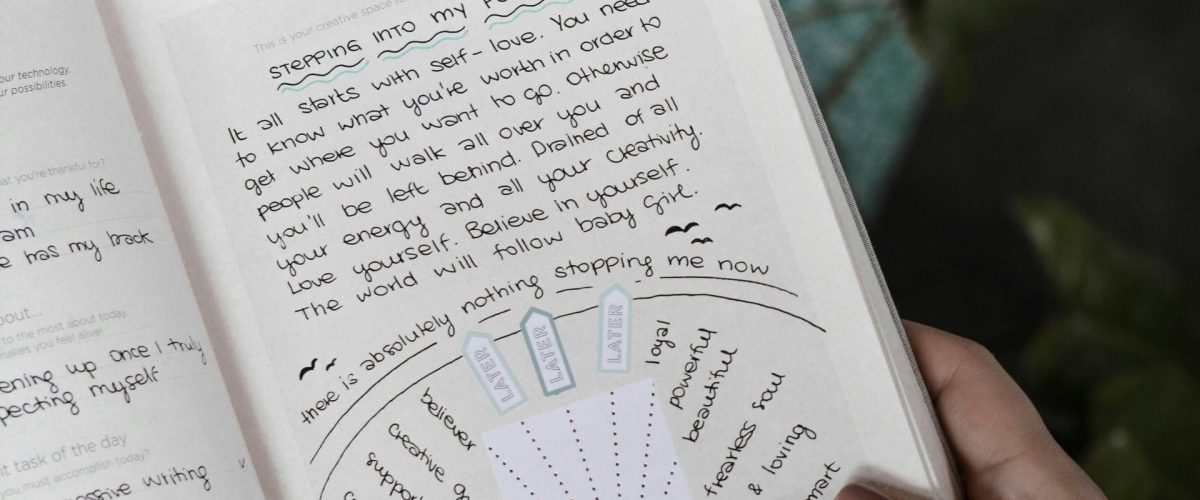 our technology.
our possibilities.
what you're thankful for?
in my life
am
has my back
about...
to the most about today.
makes you feel alive!
ening up once I truly
pecting myself
task of the day
you must accomplish today?
writing
This is your creative space
STEPPING INTO MY
It all starts with self-love. You need
to know what you're worth in order to
get where you want to go. Otherwise
people will walk all over you and
you'll be left behind. Drained of all
your energy and all your creativity.
Love yourself. Believe in yourself.
The world will follow baby girl.
there is absolutely nothing stopping me now
LATER
LATER
LATER
believer
creative
loyal
powerful
beautiful
frearless soul
& loving